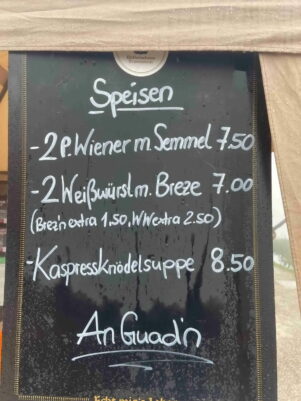 Speisen
- 2 P. Wiener m. Semmel 7.50
- 2 Weißwürst m. Breze 7.00
(Brez'n extra 1.50, WW extra 2.50)
- Kaspressknödelsuppe 8.50
An Guad'n